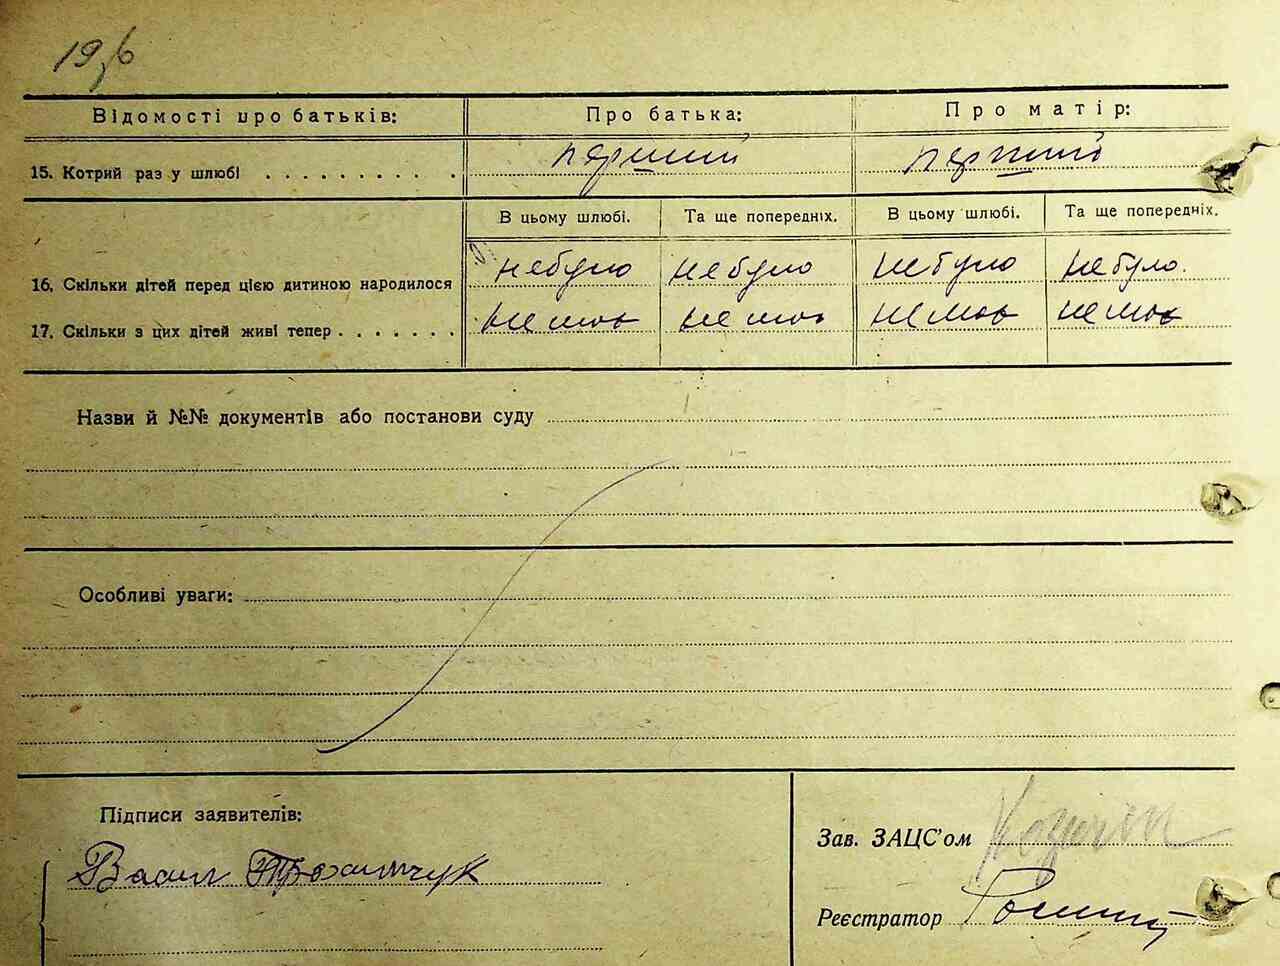 Відомості про батьків: Про батька: Про матір:
15. Котрий раз у шлюбі . . . . . . . . . . перший перший
В цьому шлюбі. Та ще попередніх. В цьому шлюбі. Та ще попередніх.
16. Скільки дітей перед цією дитиною народилося небуло небуло небуло небуло.
17. Скільки з цих дітей живі тепер . . . . . . . немає немає немає немає
Назви й №№ документів або постанови суду
Особливі уваги:
Підписи заявителів:
Зав. ЗАЦС'ом
Васил Трохимчук
Реєстратор